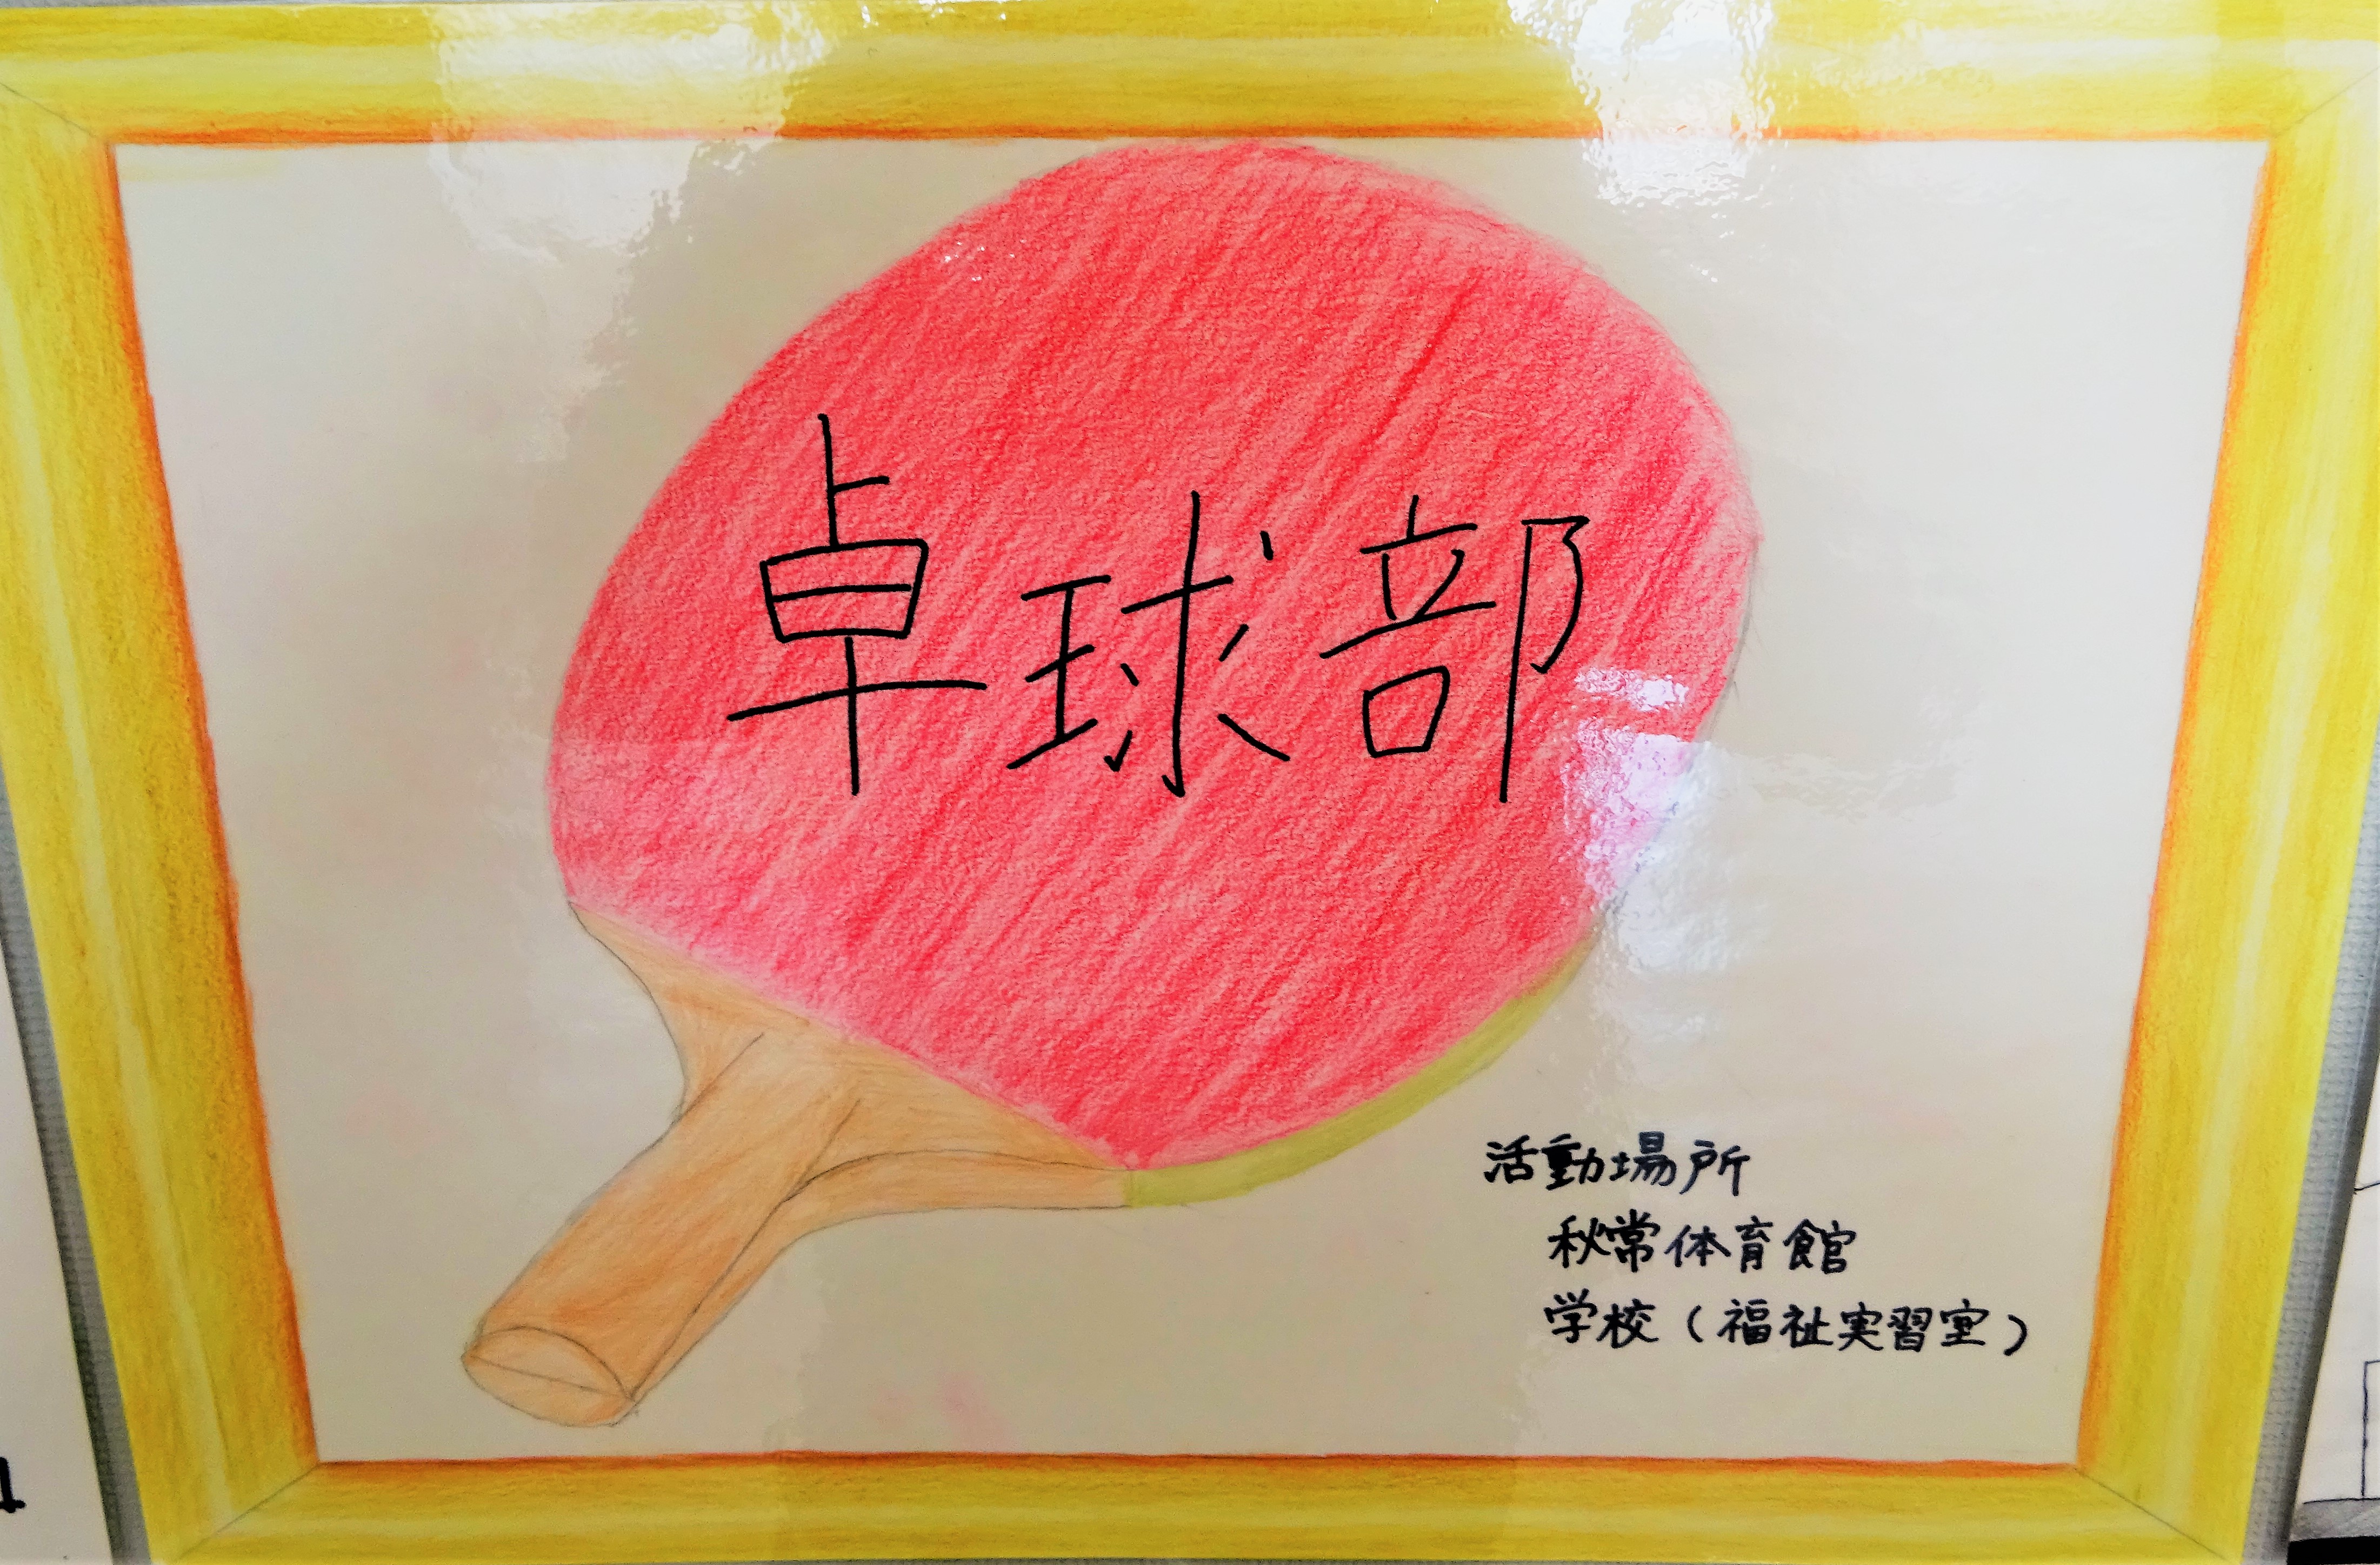 卓球部
活動場所
秋常体育館
学校(福祉実習室)